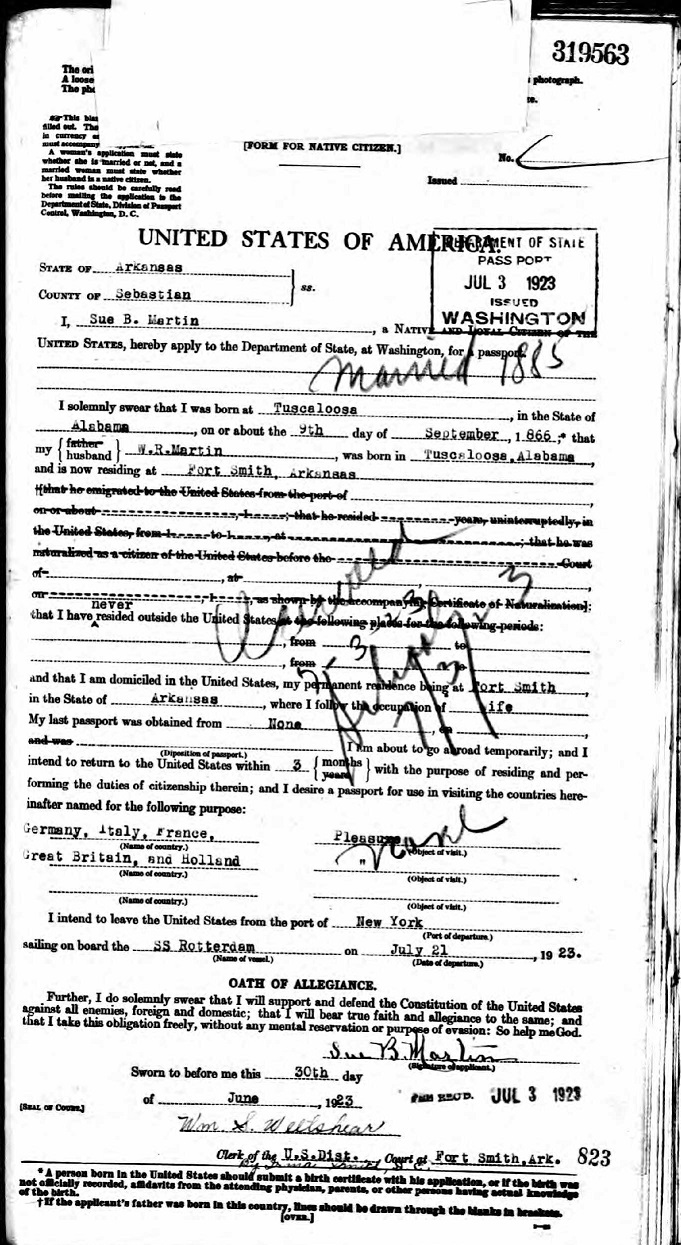 319563
The ori
A loose
The pho
photograph.
This blan
filled out. The
in currency or
must accompany
A woman's application must state
whether she is married or not, and a
married woman must state whether
her husband is a native citizen.
The rules should be carefully read
before mailing the application to the
Department of State, Division of Passport
Control, Washington, D. C.
[FORM FOR NATIVE CITIZEN.]
No.
Issued
UNITED STATES OF AMERICA.
DEPARTMENT OF STATE
PASSPORT
JUL 3 1923
ISSUED
WASHINGTON
STATE OF Arkansas
COUNTY OF Sebastian
ss.
I, Sue B. Martin, a NATIVE AND LOYAL CITIZEN OF THE
UNITED STATES, hereby apply to the Department of State, at Washington, for a passport.
Married 1885
I solemnly swear that I was born at Tuscaloosa, in the State of
Alabama, on or about the 9th day of September, 1866,* that
my {father husband} W.R.Martin, was born in Tuscaloosa,Alabama,
and is now residing at Fort Smith, Arkansas
†[that he emigrated to the United States from the port of
on or about, 1; that he resided years, uninterruptedly, in
the United States, from 1 to 1, at; that he was
naturalized as a citizen of the United States before the Court
of, at,
on, 1, as shown by the accompanying Certificate of Naturalization];
never
that I have resided outside the United States at the following places for the following periods:
, from to
, from to
and that I am domiciled in the United States, my permanent residence being at Fort Smith
in the State of Arkansas, where I follow the occupation of Wife
My last passport was obtained from None, on
and was (Disposition of passport.) I am about to go abroad temporarily; and I
intend to return to the United States within 3 {months years} with the purpose of residing and per-
forming the duties of citizenship therein; and I desire a passport for use in visiting the countries here-
inafter named for the following purpose:
Germany, Italy, France, Pleasure
(Name of country.) (Object of visit.)
Great Britain, and Holland "
(Name of country.) (Object of visit.)
(Name of country.) (Object of visit.)
I intend to leave the United States from the port of New York
(Port of departure.)
sailing on board the SS Rotterdam on July 21, 1923.
(Name of vessel.) (Date of departure.)
OATH OF ALLEGIANCE.
Further, I do solemnly swear that I will support and defend the Constitution of the United States
against all enemies, foreign and domestic; that I will bear true faith and allegiance to the same; and
that I take this obligation freely, without any mental reservation or purpose of evasion: So help me God.
Sue B. Martin
(Signature of applicant.)
Sworn to before me this 30th day
of June, 1923
FEE RECD. JUL 3 1923
[SEAL OF COURT.]
Wm S. Wellshear
Clerk of the U.S.Dist. Court at Fort Smith,Ark. 823
* A person born in the United States should submit a birth certificate with his application, or if the birth was
not officially recorded, affidavits from the attending physician, parents, or other persons having actual knowledge
of the birth.
† If the applicant's father was born in this country, lines should be drawn through the blanks in brackets.
[OVER.]